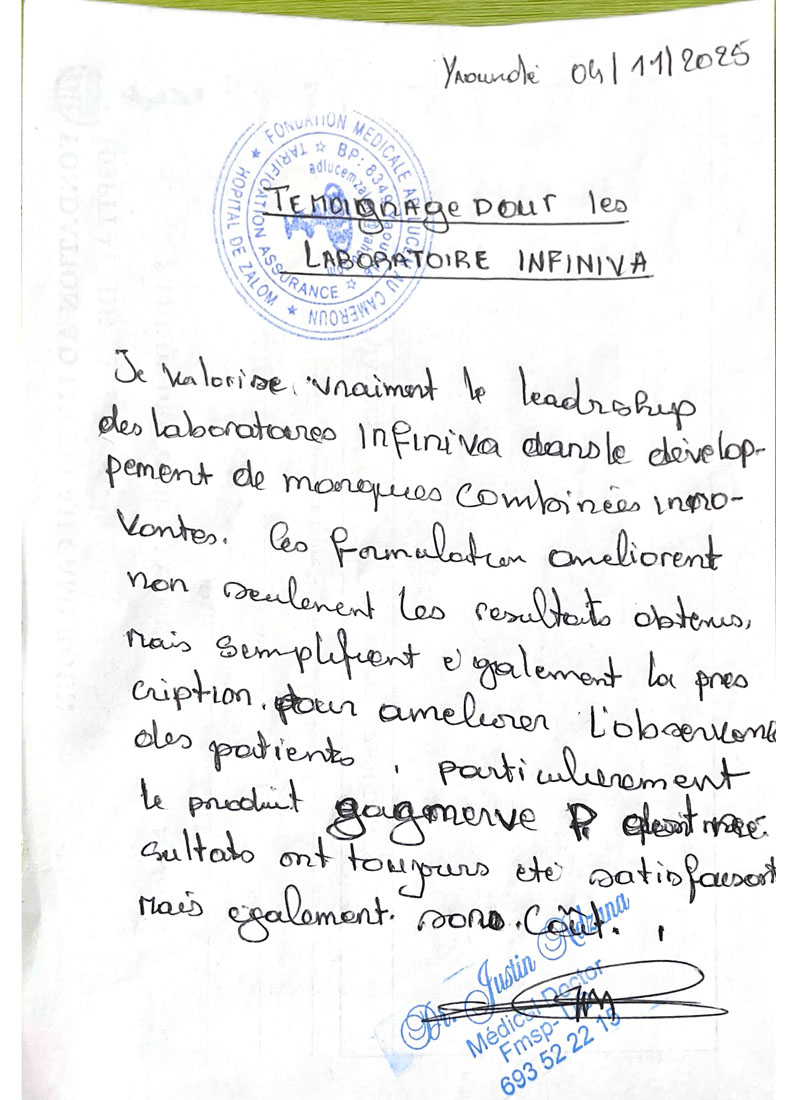 Yaoundé 04/11/2025
FONDATION MEDICALE AD LUCEM AU CAMEROUN
HOPITAL DE ZALOM
TARIFICATION ASSURANCE
BP: 834
adlucemza
TEMOIGNAGE POUR les
LABORATOIRE INFINIVA
Je valorise vraiment le leadrship
des laboratoires INFINIVA dans le dévelop-
pement de marques combinées inno-
vantes. Ces formulation ameliorent
non seulement les resultats obtenus,
mais semplifient également la pres
cription. pour ameliorer l'observance
des patients, particulierement
le produit gagnerve P dont
sultats ont toujours été satisfaisant
mais également son Coût.
Dr. Justin
Médical Doctor
Fmsp-
693 52 22 15